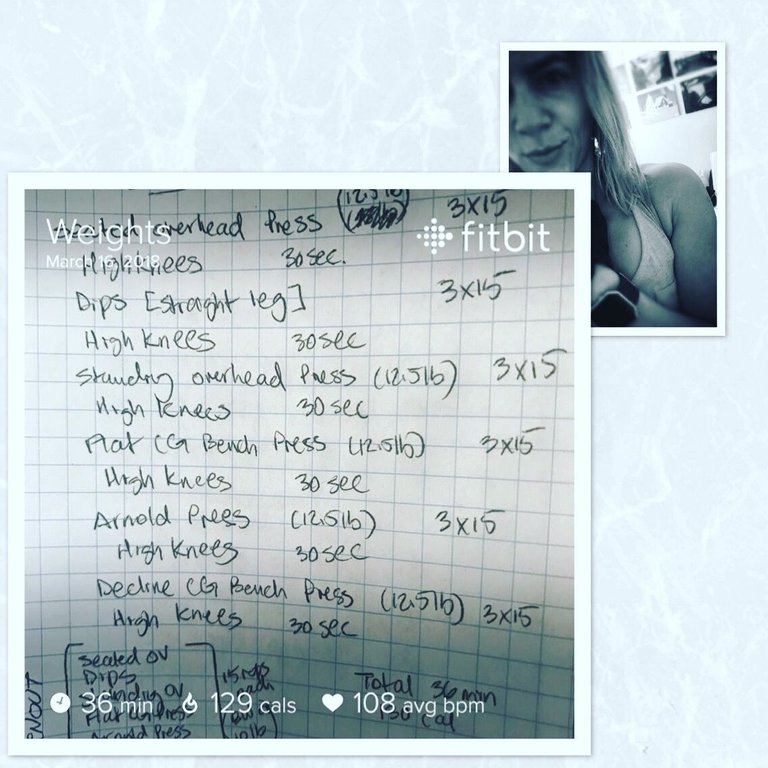 (12.5lb)
overhead Press 3x15
Weights
fitbit
March 16, 2018
High Knees 30sec.
Dips [straight leg] 3x15
High Knees 30sec
Standing overhead Press (12.5lb) 3x15
High Knees 30 sec
Flat CG Bench Press (12.5lb) 3x15
High Knees 30 sec
Arnold Press (12.5lb) 3x15
High Knees 30sec
Decline CG Bench Press (12.5lb) 3x15
High Knees 30 sec
Seated OV
Dips 15 reps
Standing OV each
Total 36 min
36 min 129 cals 108 avg bpm
Flat CG Press
Arnold Press